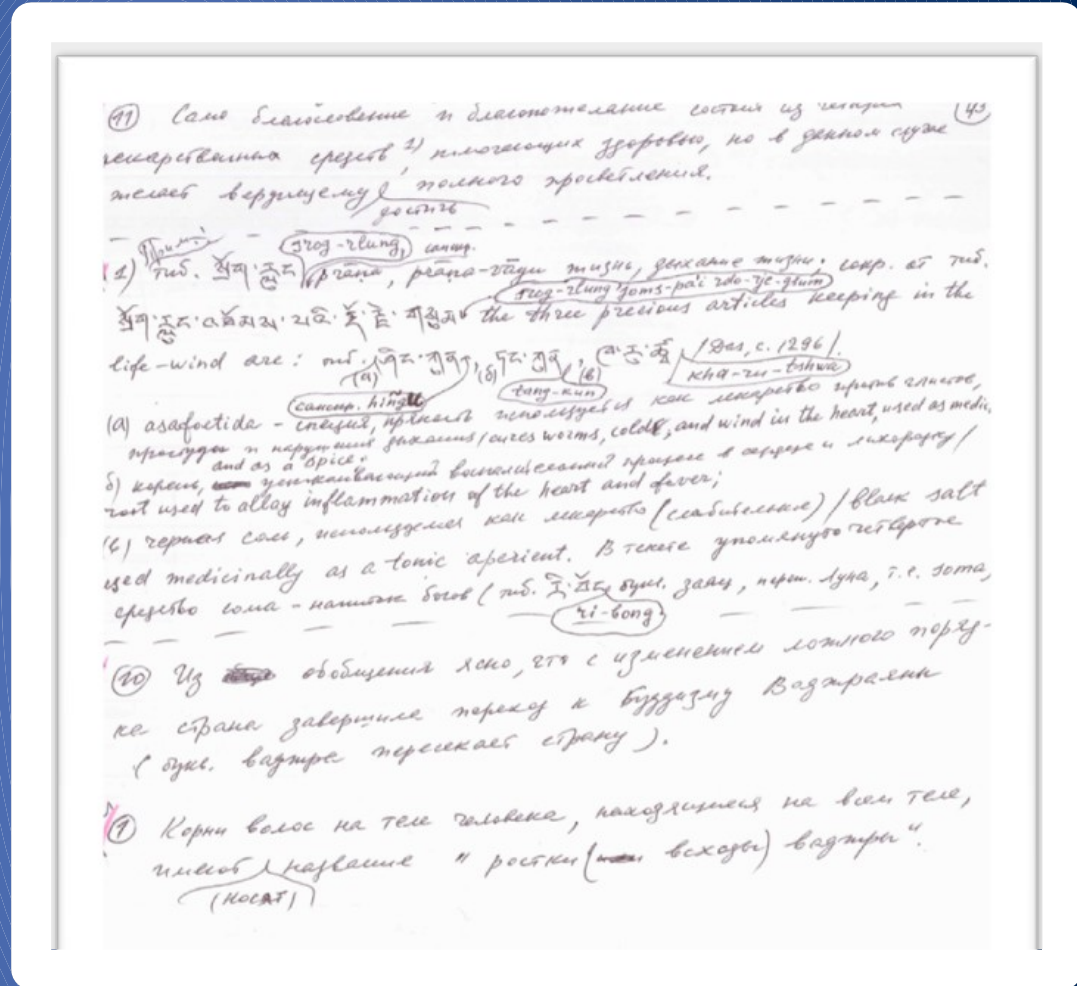 (11) Само благословение и благопожелание состоит из четырёх (43)
лекарственных средств 1) помогающих здоровью, но в данном случае
желает верующему полного просветления.
достичь
Прим.: srog-rlung, санскр.
1) Тиб. སྲོག་རླུང prāṇa, prāṇa-vāyu жизнь, дыхание жизни. сокр. от тиб.
srog-rlung 'joms-pa'i rdo-rje-gsum
སྲོག་རླུང་འཇོམས་པའི་རྡོ་རྗེ་གསུམ the three precious articles keeping in the
life-wind are: тиб. (а) ཤིང་ཀུན, (б) ཏང་ཀུན, (в) ཁ་རུ་ཚྭ /Das, с. 1296/.
санскр. hingu tang-kun kha-ru-tshwa
(а) asafoetida – специя, пряность используется как лекарство против глистов,
простуды и нарушения дыхания /cures worms, colds, and wind in the heart, used as medic.
and as a spice.
б) корень, успокаивающий воспалительный процесс в сердце и лихорадку /
root used to allay inflammation of the heart and fever;
(в) черная соль, используемая как лекарство (слабительное) / black salt
used medicinally as a tonic aperient. В тексте упомянуто четвертое
средство сома – напиток богов (тиб. རི་བོང букв. заяц, перен. луна, т.е. soma,
ri-bong
(10) Из обобщения ясно, что с изменением ложного поряд-
ка страна завершила переход к Буддизму Ваджраяны
(букв. ваджра пересекает страну).
(1) Корни волос на теле человека, находящиеся на всем теле,
имеют название "ростки (всходы) ваджры".
(носят)